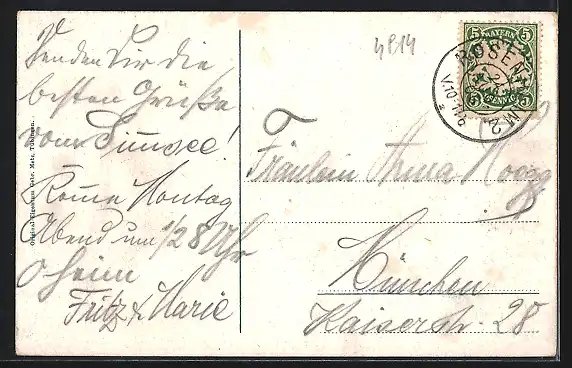 Senden Dir die
besten Grüße
vom Simsee!
Komme Montag
Abend um 1/2 8 Uhr
heim
Fritz & Marie
Original-Eigentum Gebr. Metz, Tübingen.
4814
BAYERN
5 5
5 PFENNIG 5
ROSENHEIM 2
Fräulein Anna
München
Kaiserstr. 28